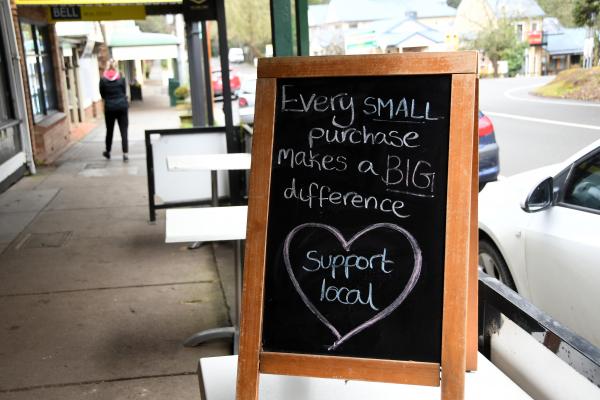 BELL
Every SMALL
purchase
makes a BIG
difference
support
local